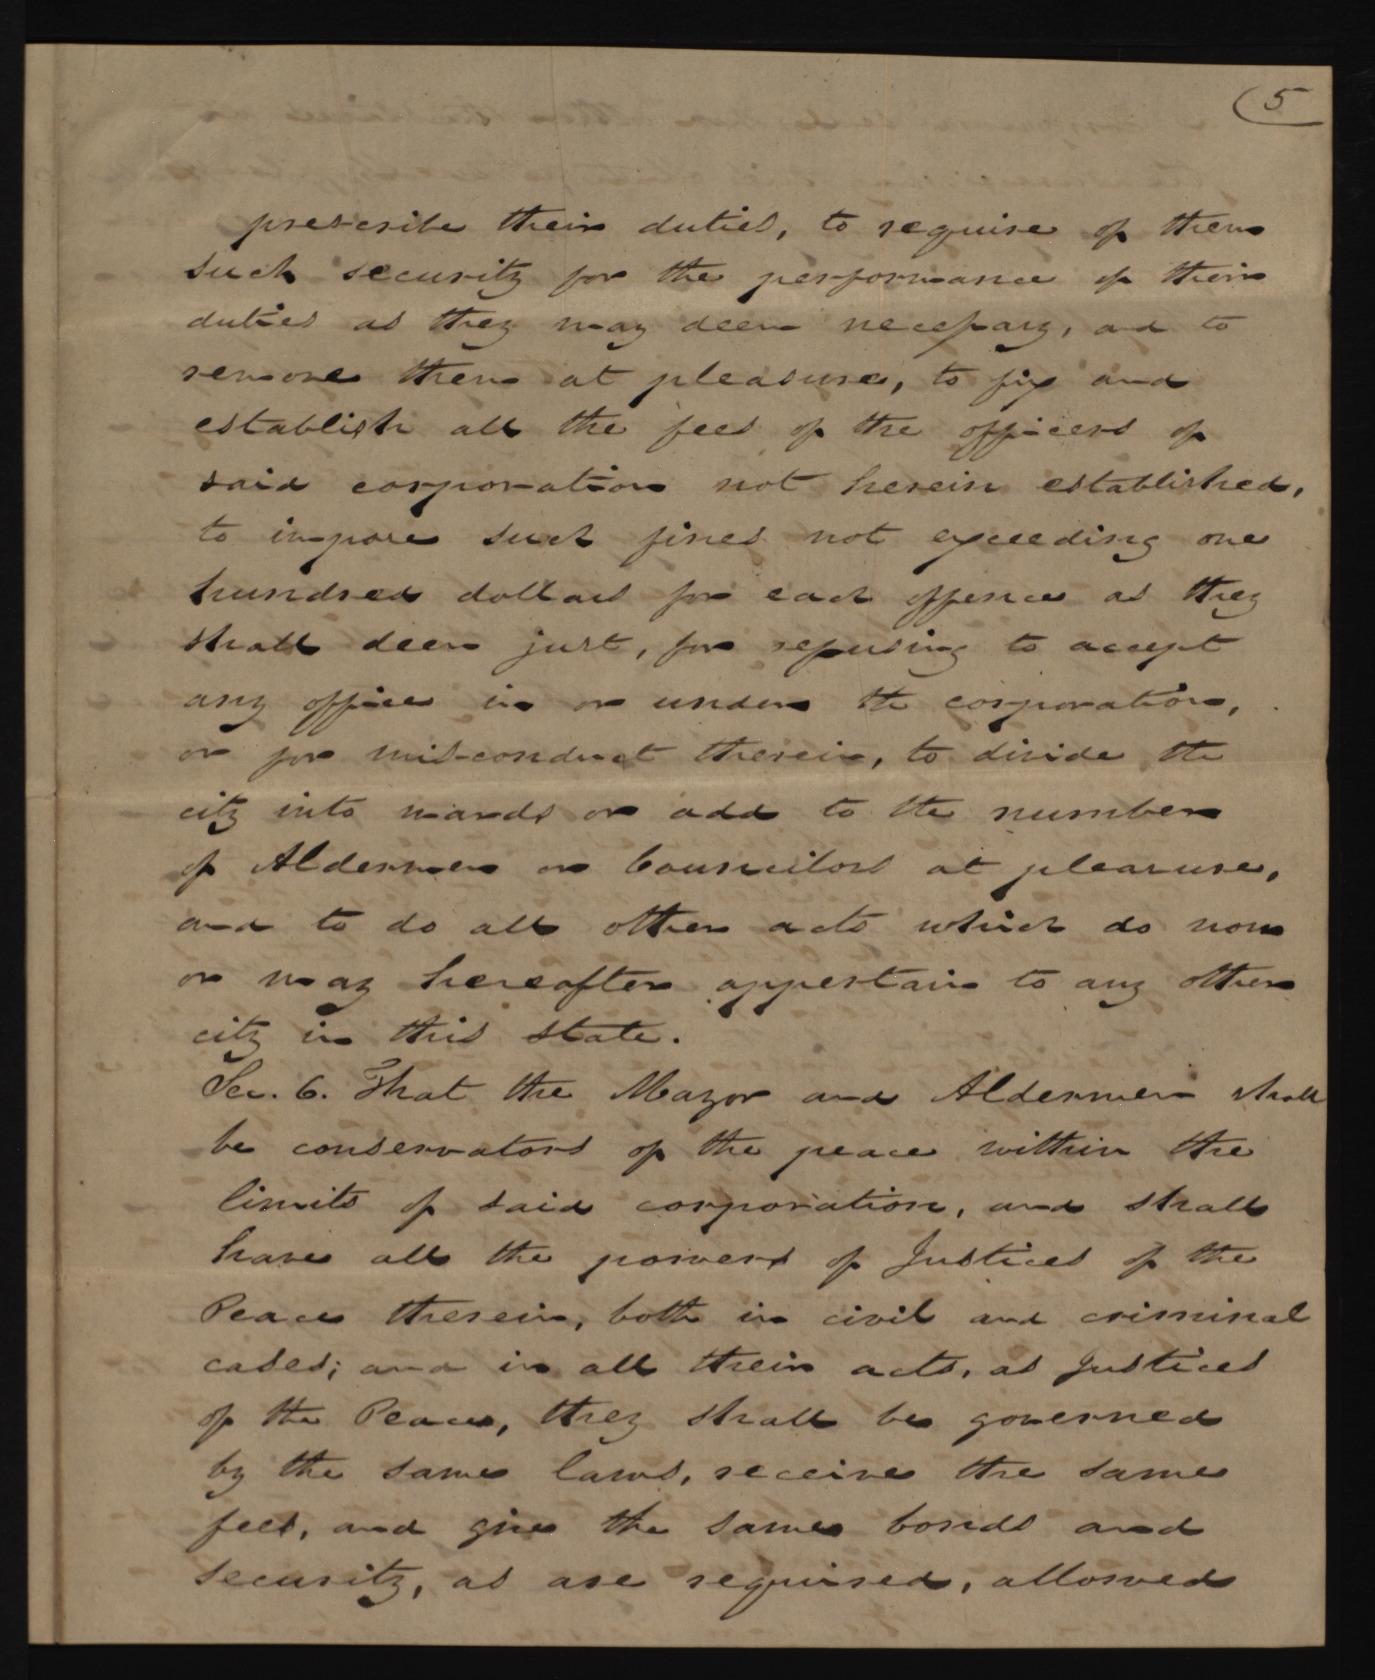 5
prescribe their duties, to require of them
such security for the performance of their
duties as they may deem necessary, and to
remove them at pleasure, to fix and
establish all the fees of the officers of
said corporation not herein established,
to impose such fines not exceeding one
hundred dollars for each offence as they
shall deem just, for refusing to accept
any office in or under the corporation,
or for mis-conduct therein, to divide the
city into wards or add to the number
of Aldermen or Councilors at pleasure,
and to do all other acts which do now
or may hereafter appertain to any other
city in this state.
Sec. 6. That the Mayor and Aldermen shall
be conservators of the peace within the
limits of said corporation, and shall
have all the powers of Justices of the
Peace therein, both in civil and criminal
cases; and in all their acts, as Justices
of the Peace, they shall be governed
by the same laws, receive the same
fees, and give the same bonds and
security, as are required, allowed